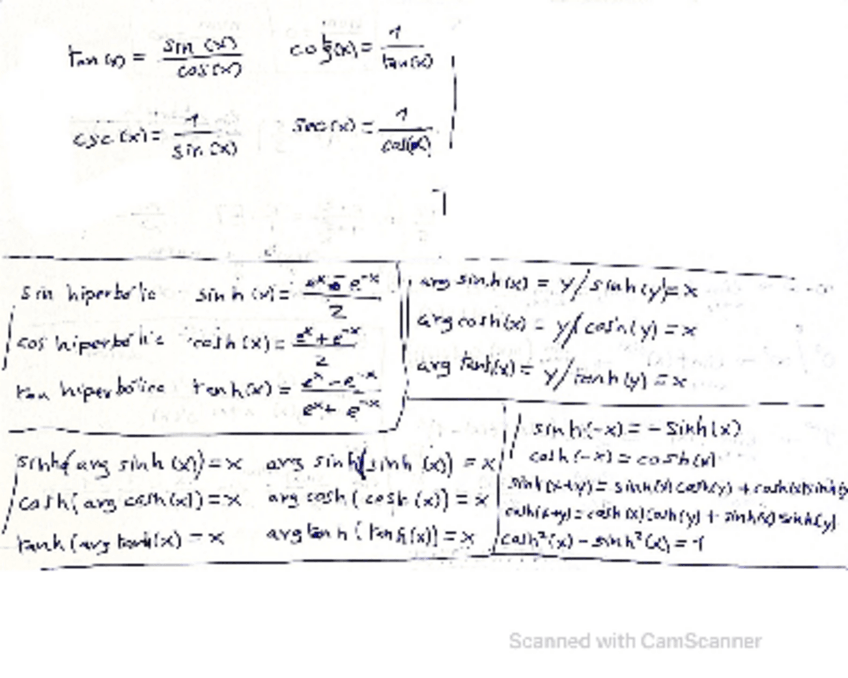 tan(x) = sin(x)/cos(x) cotg(x) = 1/tan(x)
csc(x) = 1/sin(x) sec(x) = 1/cos(x)
sin hiperbolic sinh(x) = (e^x - e^-x)/2
cos hiperbolic cosh(x) = (e^x + e^-x)/2
tan hiperbolica tanh(x) = (e^x - e^-x)/(e^x + e^-x)
arg sinh(x) = y/sinh(y) = x
arg cosh(x) = y/cosh(y) = x
arg tanh(x) = y/tanh(y) = x
sinh(arg sinh(x)) = x arg sinh(sinh(x)) = x
cosh(arg cosh(x)) = x arg cosh(cosh(x)) = x
tanh(arg tanh(x) = x arg tanh(tanh(x)) = x
sinh(-x) = -sinh(x)
cosh(-x) = cosh(x)
sinh(x+y) = sinh(x)cosh(y) + cosh(x)sinh(y
cosh(x+y) = cosh(x)cosh(y) + sinh(x)sinh(y)
cosh²(x) - sinh²(x) = 1
Scanned with CamScanner